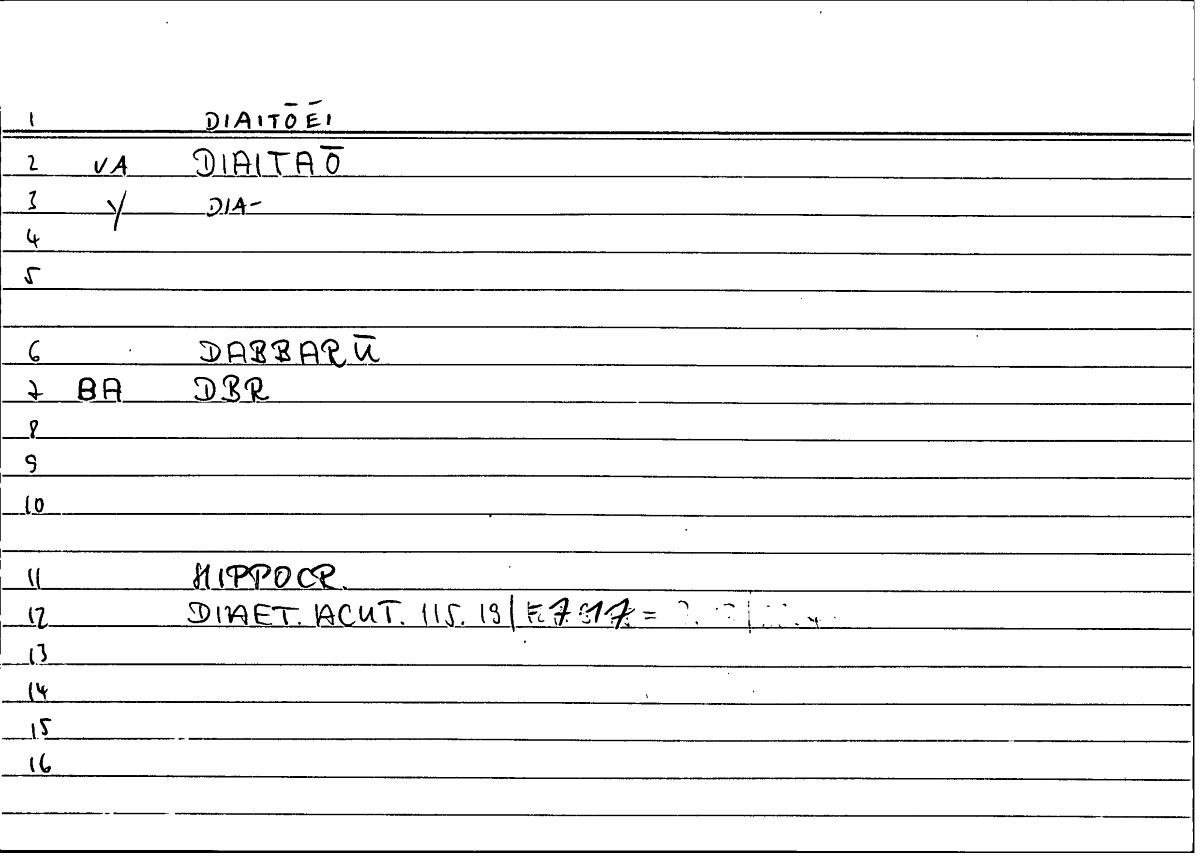 1 DIAITŌĒI
2 VA DIAITAŌ
3 Y DIA-
4
5
6 DABBARŪ
7 BA DBR
8
9
10
11 HIPPOCR.
12 DIAET. ACUT. 115. 19 |
13
14
15
16